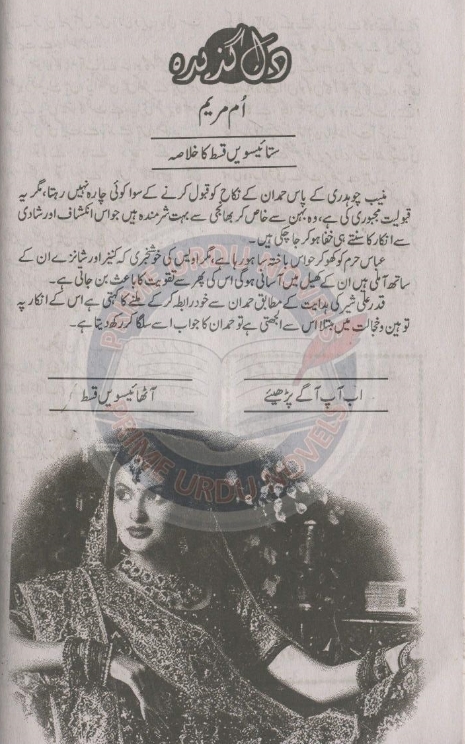 دل گذیدہ
اُم مریم
ستائیسویں قسط کا خلاصہ
منیب چوہدری کے پاس حمدان کے نکاح کو قبول کرنے کے سوا کوئی چارہ نہیں رہتا، مگر یہ
قبولیت مجبوری کی ہے، وہ بہن سے خاص کر بھانجی سے بہت شرمندہ ہیں جو اس انکشاف اور شادی
سے انکار کا سنتے ہی خفا ہو کر جا چکی ہیں۔
عباس حرم کو کھو کر حواس باختہ سا ہو رہا ہے، مگر اہ میں کی خوشخبری کہ کنیز اور شانزے ان کے
ساتھ آ ملی ہیں ان کے کھیل میں آسانی ہو گی اس کی پھر سے تقویت کا باعث بن جاتی ہے۔
قدر علی شیر کی ہدایت کے مطابق حمدان سے خود رابطہ کر کے ملنے کا کہتی ہے اس کے انکار پہ
توہین و خجالت میں مبتلا اس سے الجھتی ہے تو حمدان کا جواب اسے سلگا کر رکھ دیتا ہے۔
آٹھائیسویں قسط
اب آپ آگے پڑھیئے
PRIME URDU NOVELS
PRIME URDU NOVELS